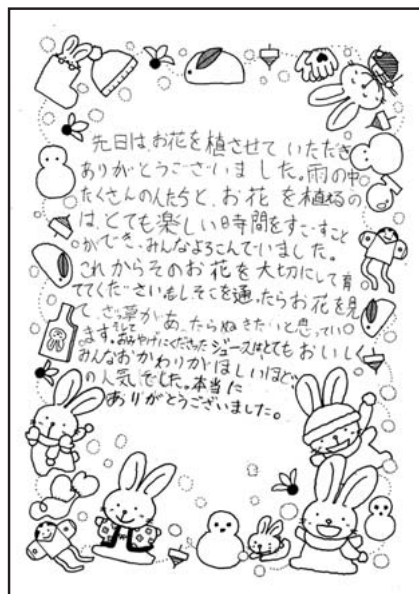 先日は、お花を植させていただき
ありがとうございました。雨の中
たくさんの人たちと、お花を植るの
は、とても楽しい時間をすごすこと
ができ、みんなよろこんでいました。
これからそのお花を大切にして育
ててください。もしそこを通ったらお花を見
て、ざっ草があったらぬきたいと思ってい
ます。そして
おみやげにくださったジュースはとてもおいしく
みんなおかわりがほしいほど
の人気でした。本当に
ありがとうございました。